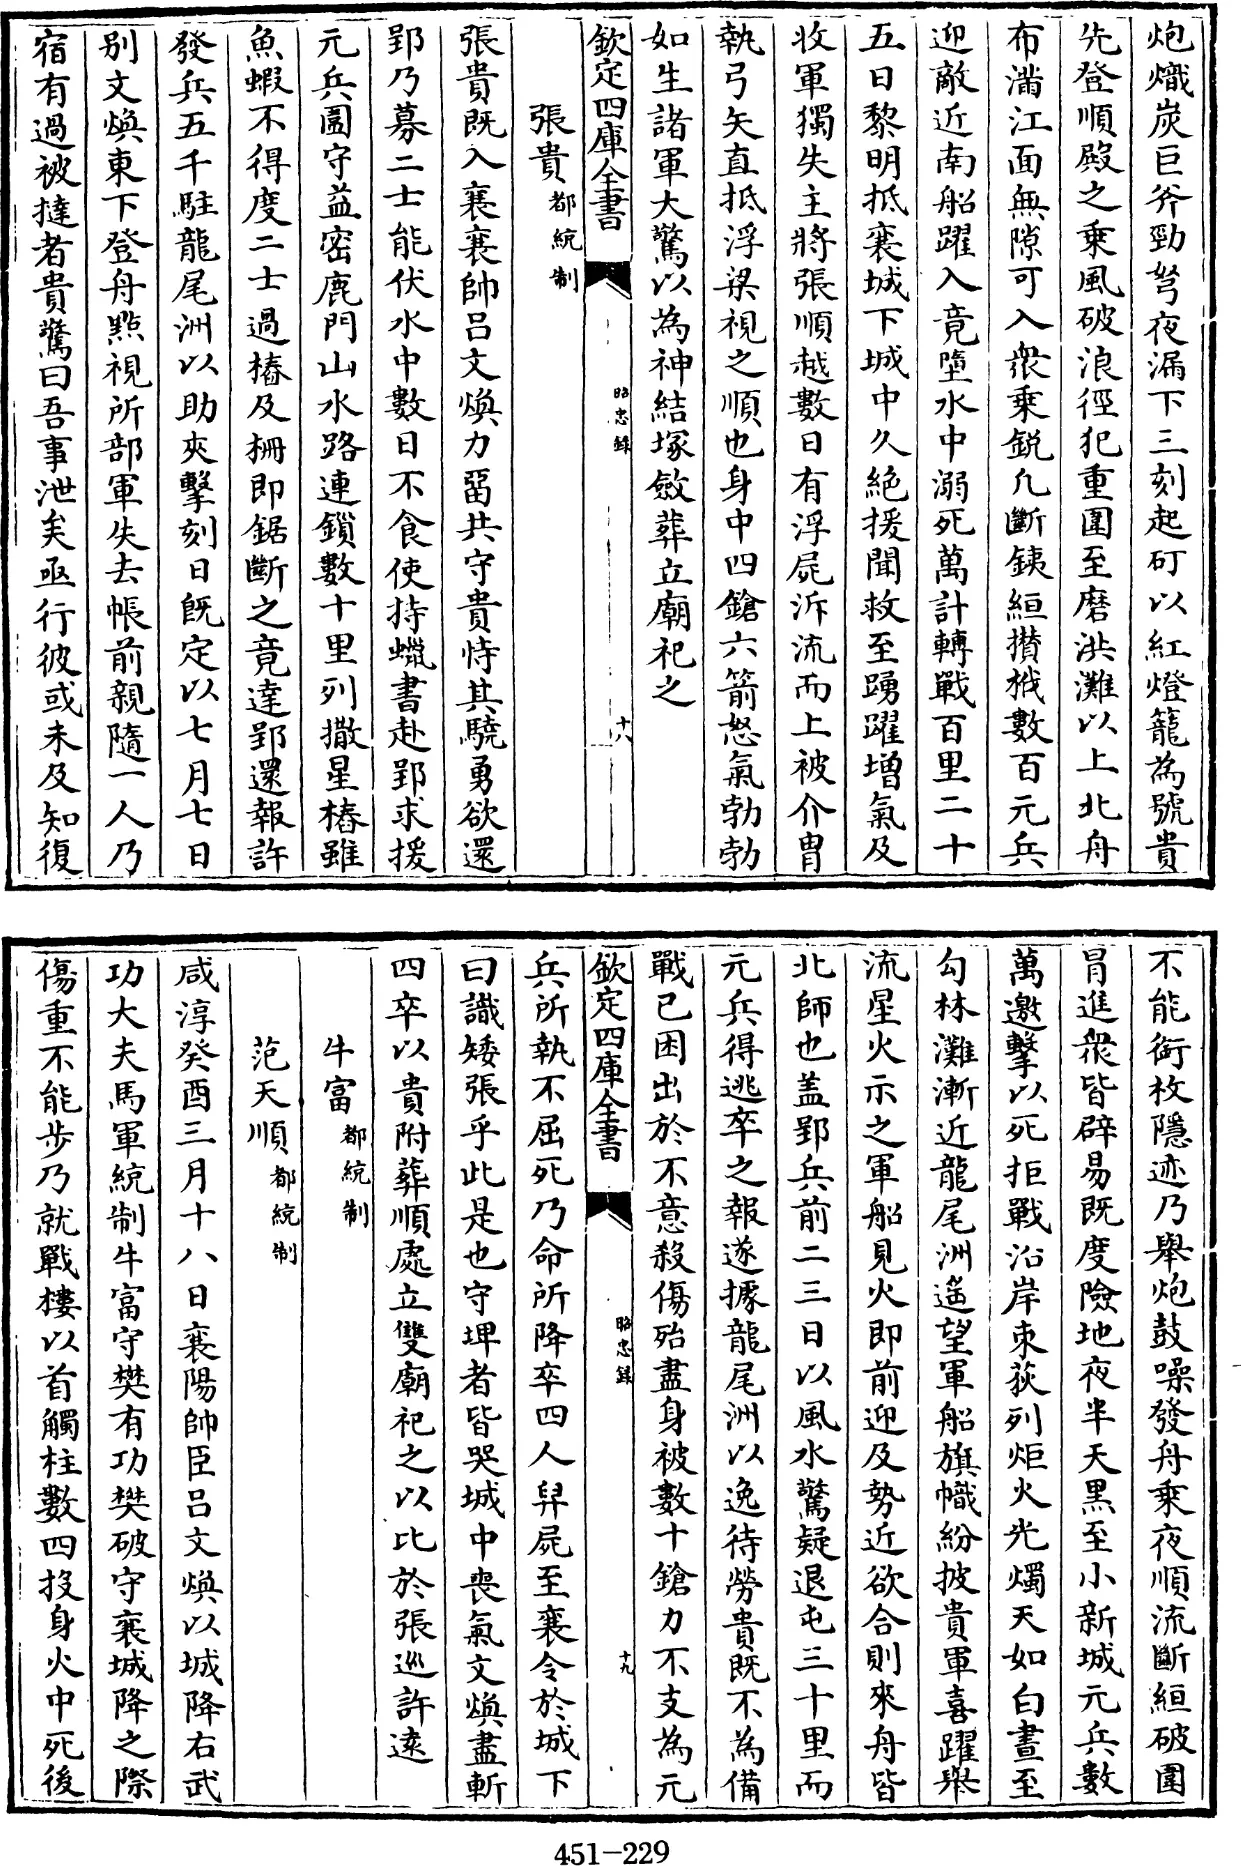 炮熾炭巨斧勁弩夜漏下三刻起矴以紅燈籠為號貴
先登順殿之乗風破浪徑犯重圍至磨洪灘以上北舟
布滿江面無隙可入衆乗銳凡斷鉄絙攅杙數百元兵
迎敵近南船躍入竟墮水中溺死萬計轉戰百里二十
五日黎明抵襄城下城中久絶援聞救至踴躍増氣及
收軍獨失主將張順越數日有浮屍泝流而上被介胄
執弓矢直抵浮梁視之順也身中四鎗六箭怒氣勃勃
如生諸軍大驚以為神結塚斂葬立廟祀之
欽定四庫全書
昭忠錄
十八
張貴都統制
張貴既入襄襄帥呂文煥力畱共守貴恃其驍勇欲還
郢乃募二士能伏水中數日不食使持蠟書赴郢求援
元兵圍守益密鹿門山水路連鎖數十里列撒星樁雖
魚蝦不得度二士過樁及柵即鋸斷之竟達郢還報許
發兵五千駐龍尾洲以助夾擊刻日既定以七月七日
别文煥東下登舟㸃視所部軍失去帳前親隨一人乃
宿有過被撻者貴驚曰吾事泄矣亟行彼或未及知復
不能銜枚隱迹乃舉炮鼓噪發舟乗夜順流斷絙破圍
冒進衆皆辟易既度險地夜半天黒至小新城元兵數
萬邀擊以死拒戰沿岸束荻列炬火光燭天如白晝至
勾林灘漸近龍尾洲遥望軍船旗幟紛披貴軍喜躍舉
流星火示之軍船見火即前迎及勢近欲合則來舟皆
北師也盖郢兵前二三日以風水驚疑退屯三十里而
元兵得逃卒之報遂據龍尾洲以逸待勞貴既不為備
戰已困出於不意殺傷殆盡身被數十鎗力不支為元
欽定四庫全書
昭忠錄
十九
兵所執不屈死乃命所降卒四人舁屍至襄令於城下
曰識矮張乎此是也守埤者皆哭城中喪氣文煥盡斬
四卒以貴附葬順處立雙廟祀之以比於張巡許逺
牛富都統制
范天順都統制
咸淳癸酉三月十八日襄陽帥臣呂文煥以城降右武
功大夫馬軍統制牛富守樊有功樊破守襄城降之際
傷重不能步乃就戰樓以首觸柱數四投身火中死後
451-229